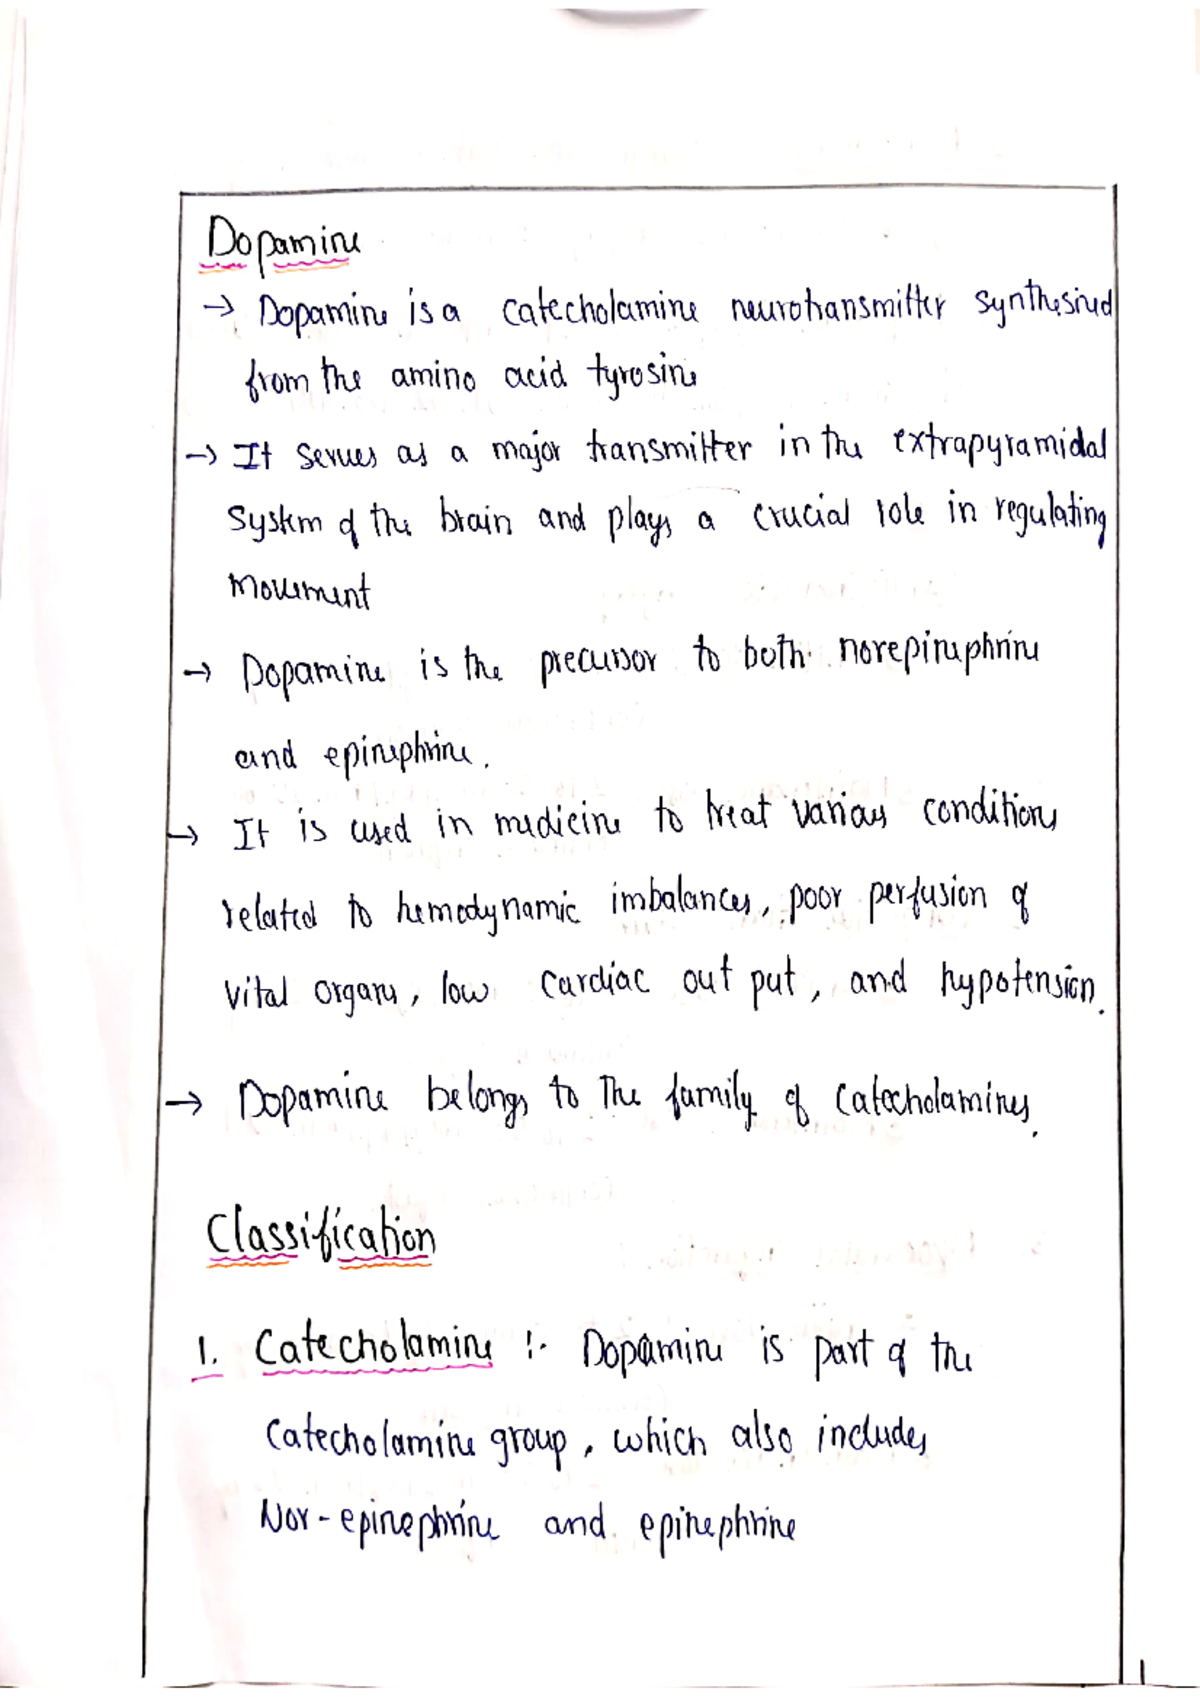 Dopamine
→ Dopamine is a catecholamine neurotransmitter synthesized
from the amino acid tyrosine
→ It serves as a major transmitter in the extrapyramidal
system of the brain and plays a crucial role in regulating
movement
→ Dopamine is the precursor to both norepinephrine
and epinephrine.
→ It is used in medicine to treat various conditions
related to hemodynamic imbalances, poor perfusion of
vital organs, low cardiac out put, and hypotension.
→ Dopamine belongs to the family of catecholamines.
Classification
1. Catecholamine :- Dopamine is part of the
catecholamine group, which also includes
Nor-epinephrine and epinephrine
1